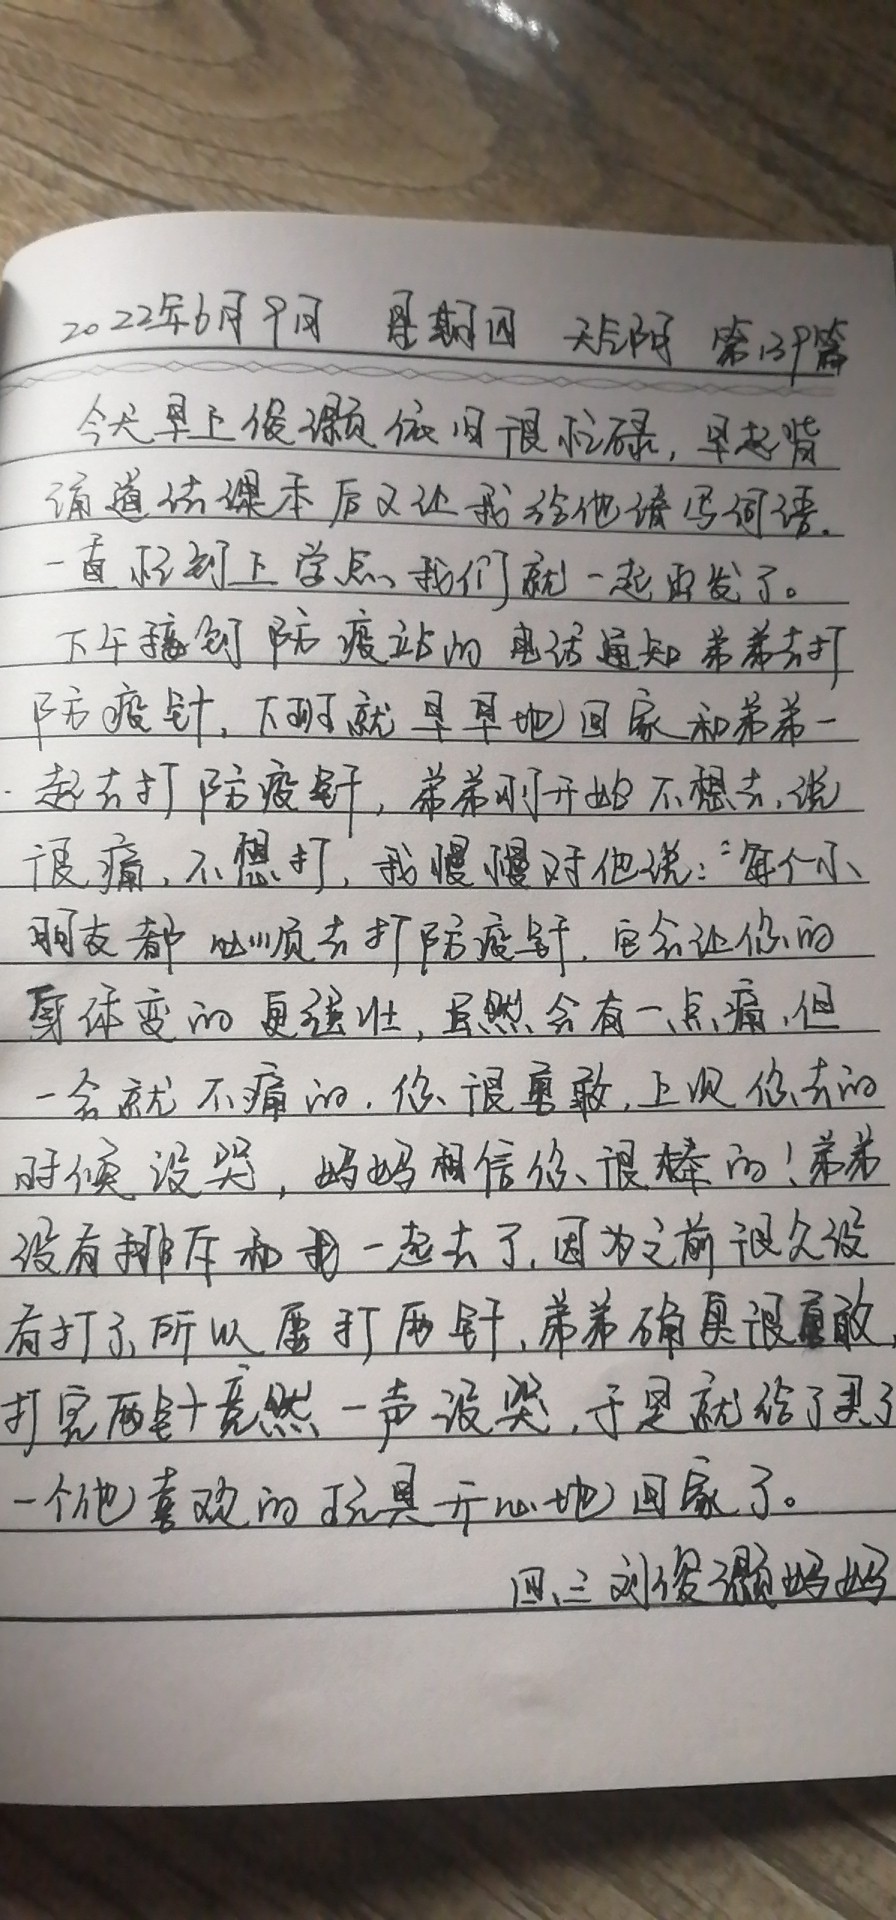 2022年6月9日 星期四 天气阴 第139篇
今天早上俊灏依旧很忙碌，早起背
诵道法课本后又让我给他读写词语，
一直忙到上学点，我们就一起出发了。
下午接到防疫站的电话通知弟弟去打
防疫针，下班就早早地回家和弟弟一
起去打防疫针，弟弟刚开始不想去，说
很痛，不想打，我慢慢对他说：“每个小
朋友都必须去打防疫针，它会让你的
身体变的更强壮，虽然会有一点痛，但
一会就不痛的，你很勇敢，上次你去的
时候没哭，妈妈相信你很棒的！弟弟
没有排斥和我一起去了，因为之前很久没
有打了，所以要打两针，弟弟确真很勇敢，
打完两针竟然一声没哭，于是就给了买了
一个他喜欢的玩具开心地回家了。
四.三刘俊灏妈妈